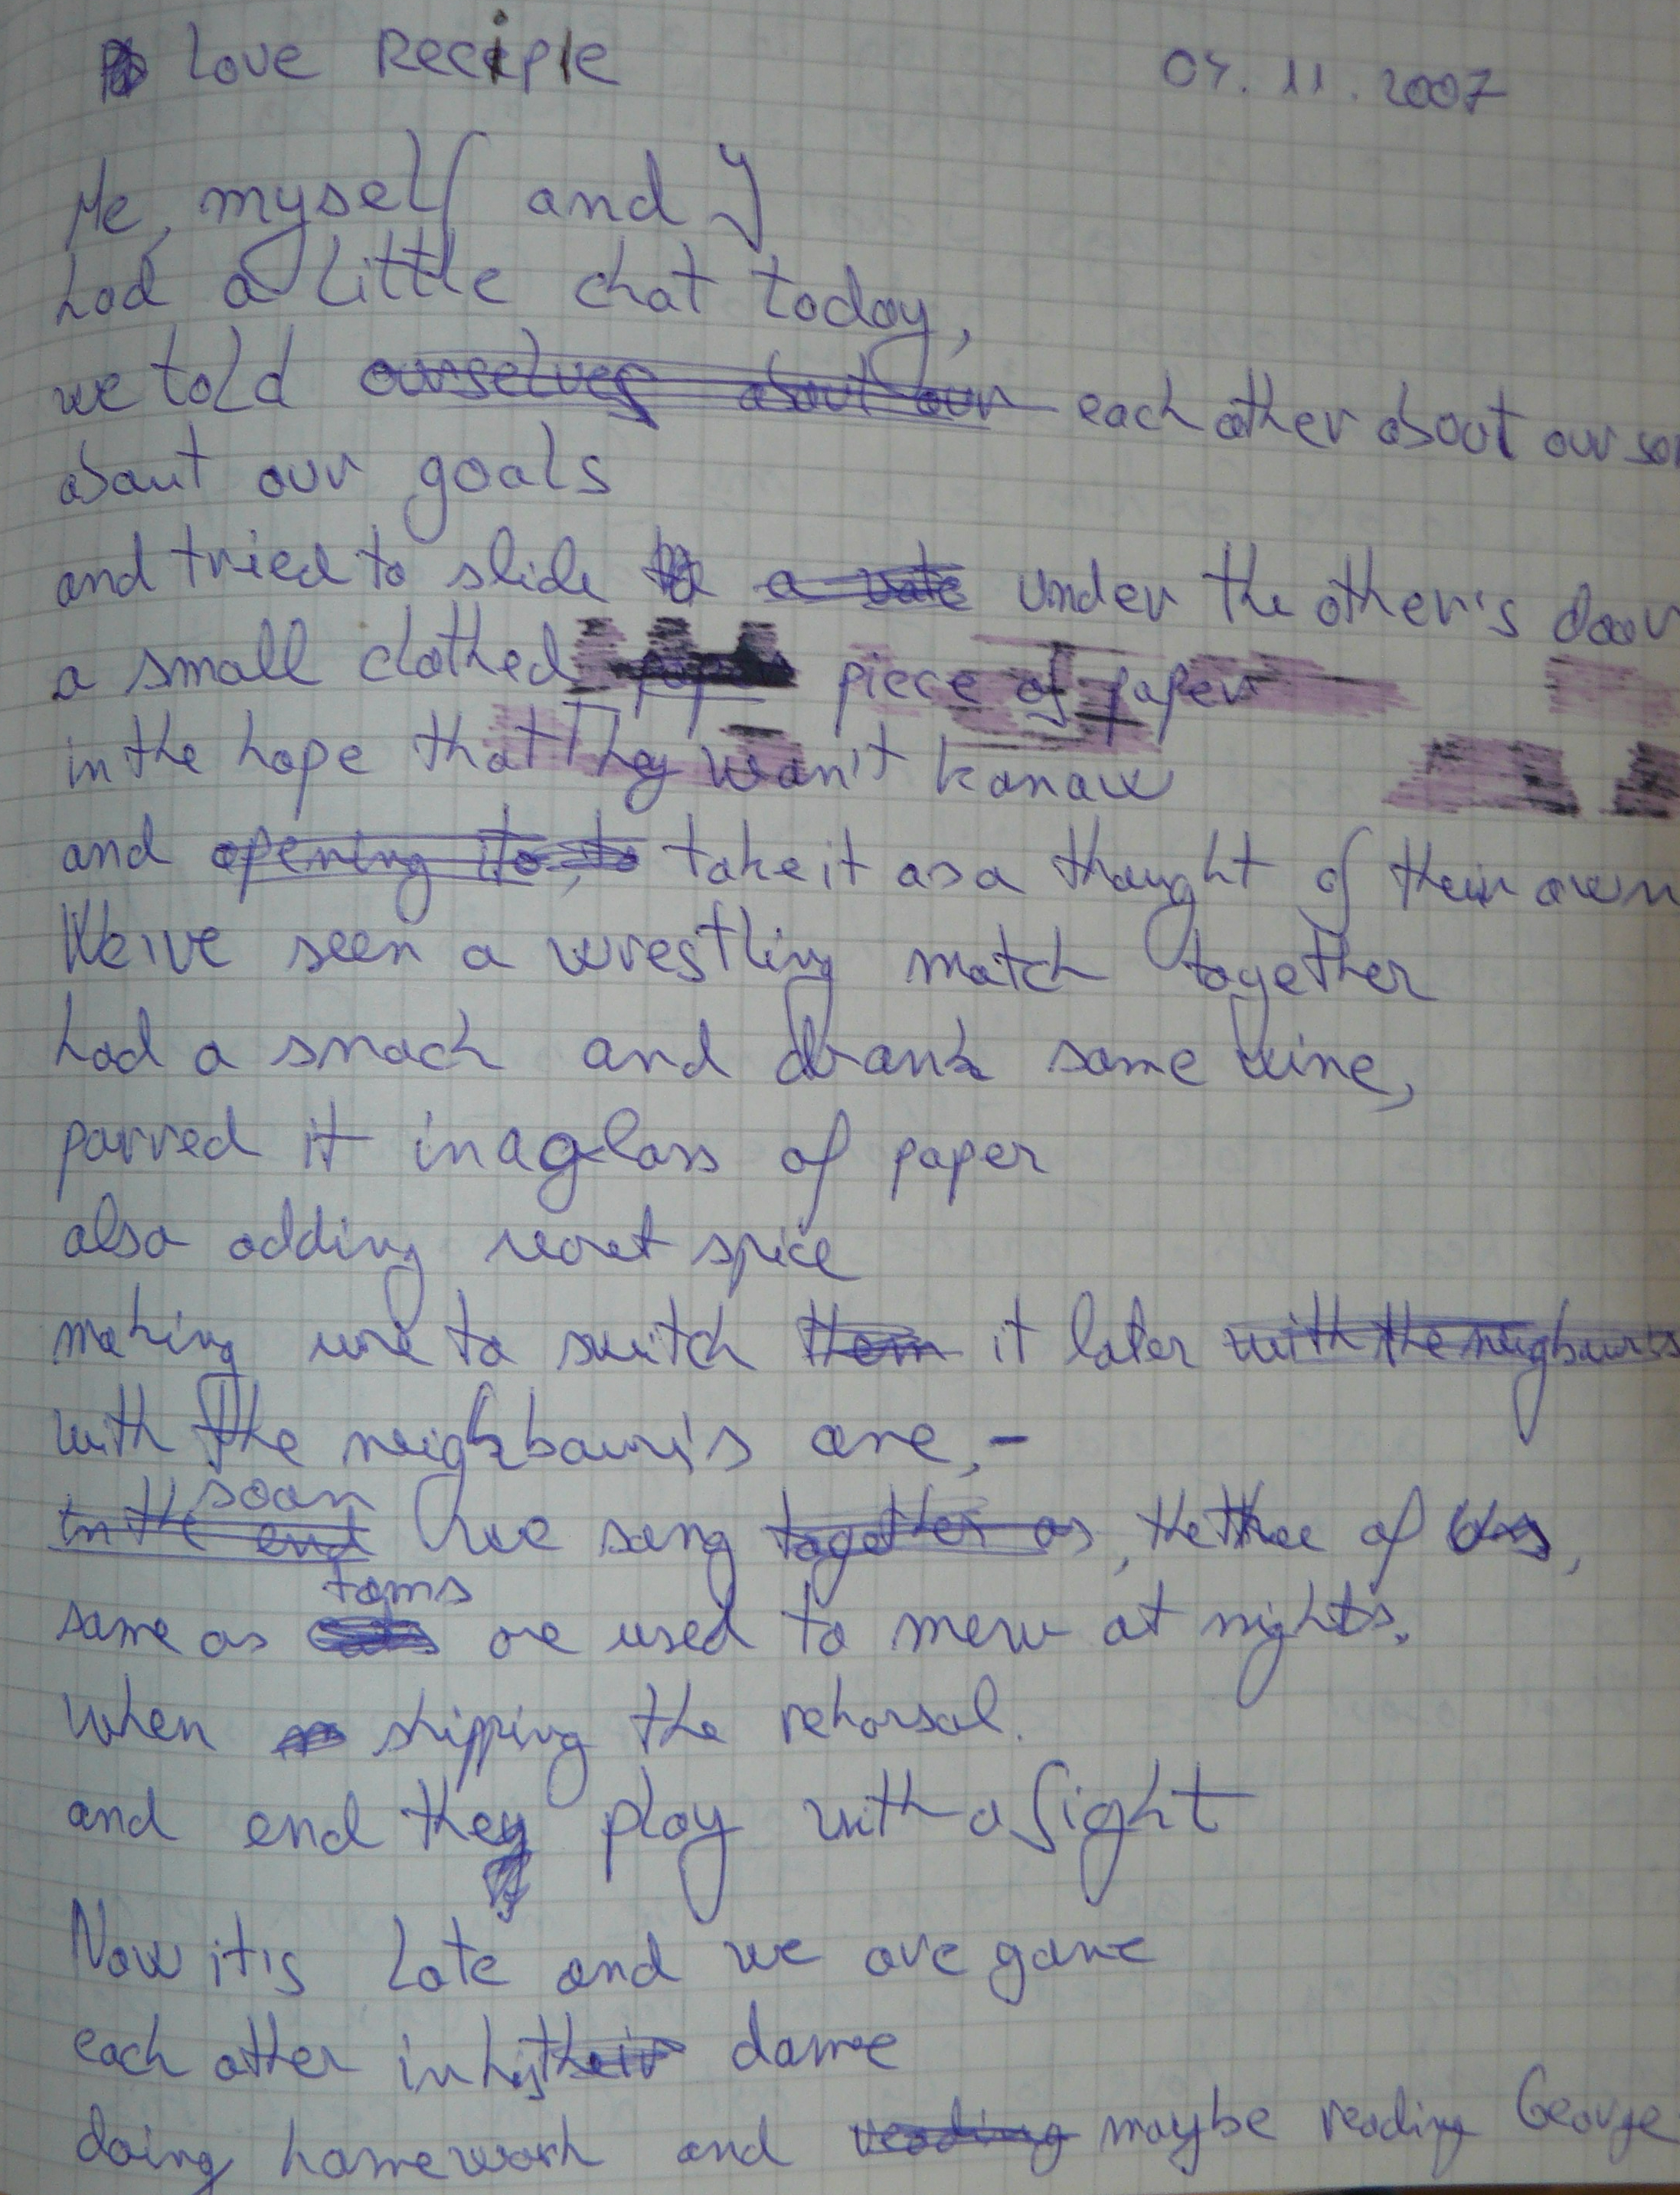 Love Recipie 04.11.2007
Me, myself and I
had a little chat today,
we told ourselves about our each other about our
about our goals
and tried to slide a note under the other's door
a small clothed piece of paper
in the hope that They won't konow
and opening it, to take it as a thought of their own
We've seen a wrestling match together
had a snack and drank some wine,
parred it in a glass of paper
also adding secret spice
making sure to switch them it later with the neighbour's
with the neighbour's one,-
soon
in the end we sang together as, the three of us,
toms
same as cats are used to mew at nights.
when skipping the rehorsal.
and end they play with a fight
Now it's late and we are gone
each other in his their dome
doing homework and reading maybe reading George